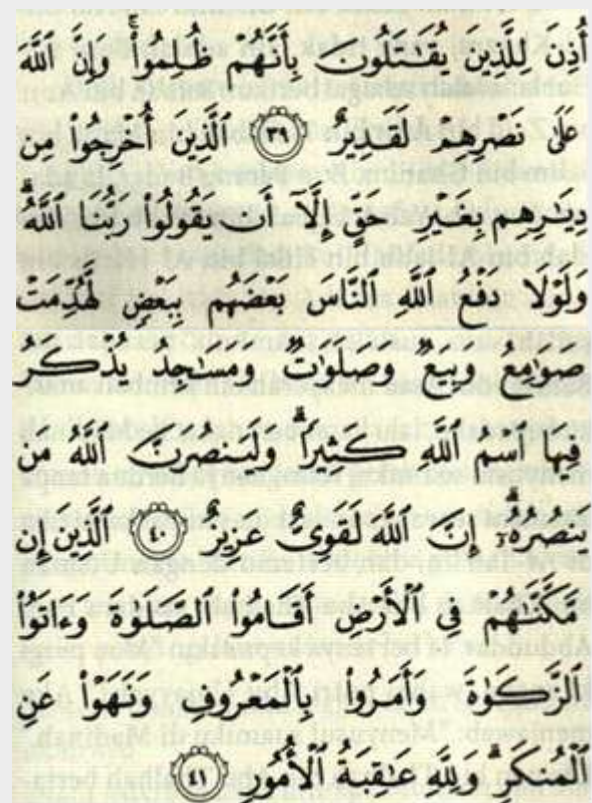 أُذِنَ لِلَّذِينَ يُقَٰتَلُونَ بِأَنَّهُمْ ظُلِمُوا۟ ۚ وَإِنَّ ٱللَّهَ
عَلَىٰ نَصْرِهِمْ لَقَدِيرٌ ٣٩ ٱلَّذِينَ أُخْرِجُوا۟ مِن
دِيَٰرِهِم بِغَيْرِ حَقٍّ إِلَّآ أَن يَقُولُوا۟ رَبُّنَا ٱللَّهُ ۗ
وَلَوْلَا دَفْعُ ٱللَّهِ ٱلنَّاسَ بَعْضَهُم بِبَعْضٍ لَّهُدِّمَتْ
صَوَٰمِعُ وَبِيَعٌ وَصَلَوَٰتٌ وَمَسَٰجِدُ يُذْكَرُ
فِيهَا ٱسْمُ ٱللَّهِ كَثِيرًا ۗ وَلَيَنصُرَنَّ ٱللَّهُ مَن
يَنصُرُهُۥٓ ۗ إِنَّ ٱللَّهَ لَقَوِىٌّ عَزِيزٌ ٤٠ ٱلَّذِينَ إِن
مَّكَّنَّٰهُمْ فِى ٱلْأَرْضِ أَقَامُوا۟ ٱلصَّلَوٰةَ وَءَاتَوُا۟
ٱلزَّكَوٰةَ وَأَمَرُوا۟ بِٱلْمَعْرُوفِ وَنَهَوْا۟ عَنِ
ٱلْمُنكَرِ ۗ وَلِلَّهِ عَٰقِبَةُ ٱلْأُمُورِ ٤١